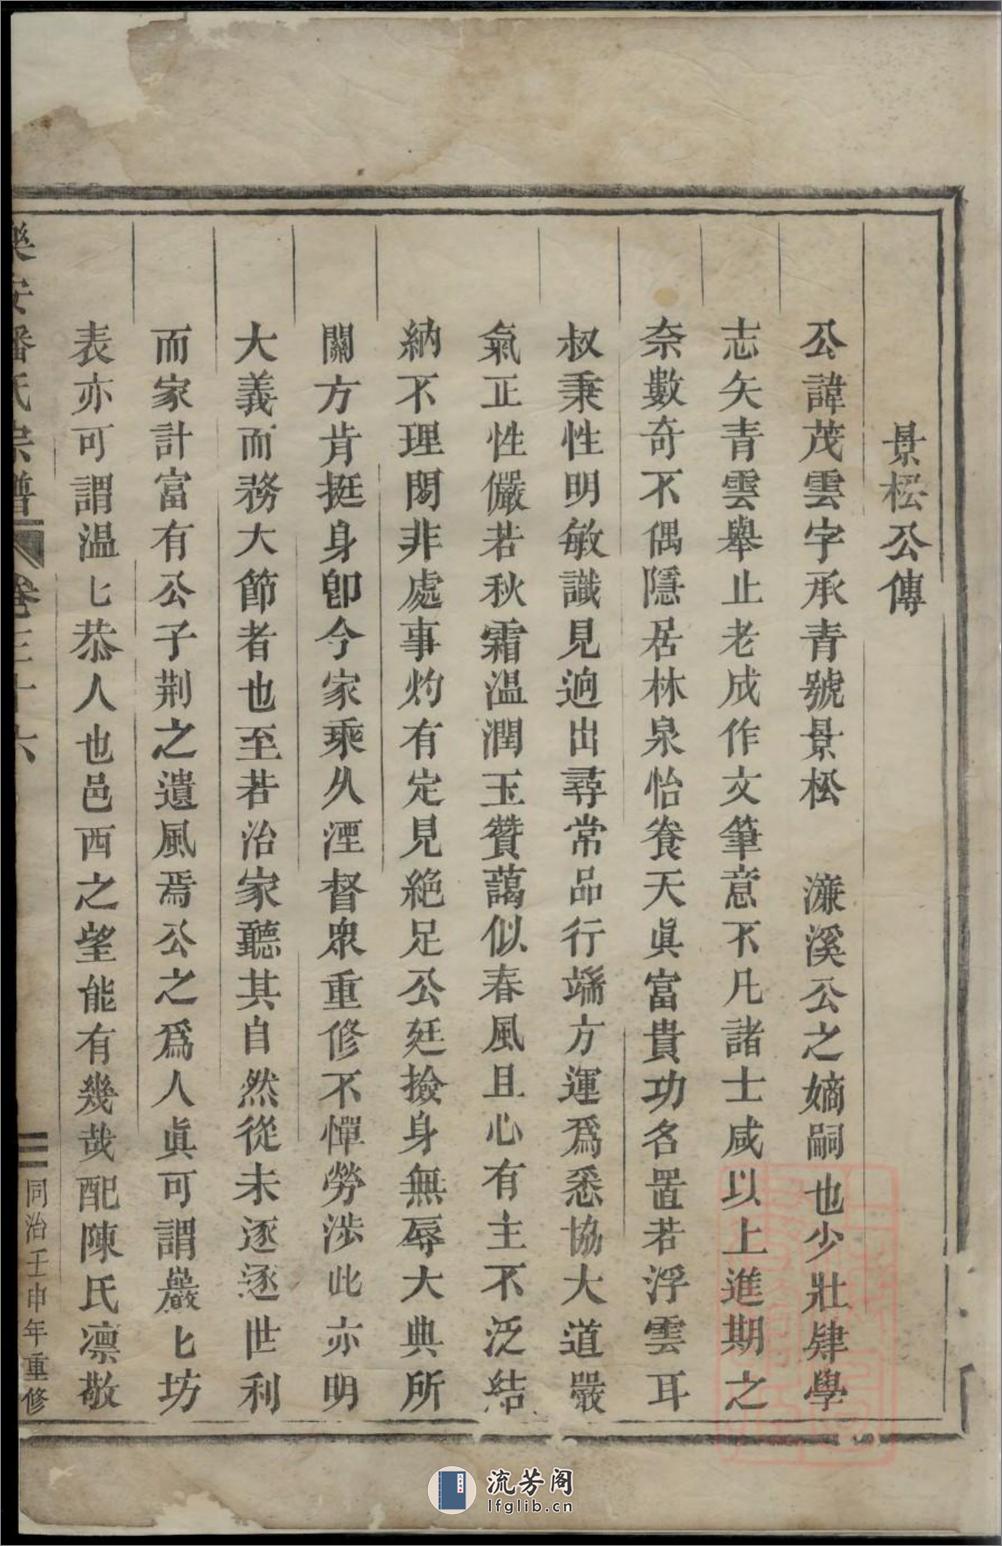 景松公傳
公諱茂雲字承青號景松　濂溪公之嫡嗣也少壯肄學
志矢青雲舉止老成作文筆意不凡諸士咸以上進期之
奈數奇不偶隱居林泉怡養天眞富貴功名置若浮雲耳
叔秉性明敏識見逈出尋常品行端方運爲悉協大道嚴
氣正性儼若秋霜溫潤玉贊藹似春風且心有主不泛結
納不理閒非處事灼有定見絶足公廷撿身無辱大典所
關方肯挺身卽今家乘久湮督衆重修不憚勞涉此亦明
大義而務大節者也至若治家聽其自然從未逐逐世利
而家計富有公子荆之遺風焉公之爲人眞可謂嚴匕坊
表亦可謂温匕恭人也邑西之望能有幾哉配陳氏凛敬
樂安潘氏宗譜
卷三十六
同治壬申年重修
流芳阁
lfglib.cn